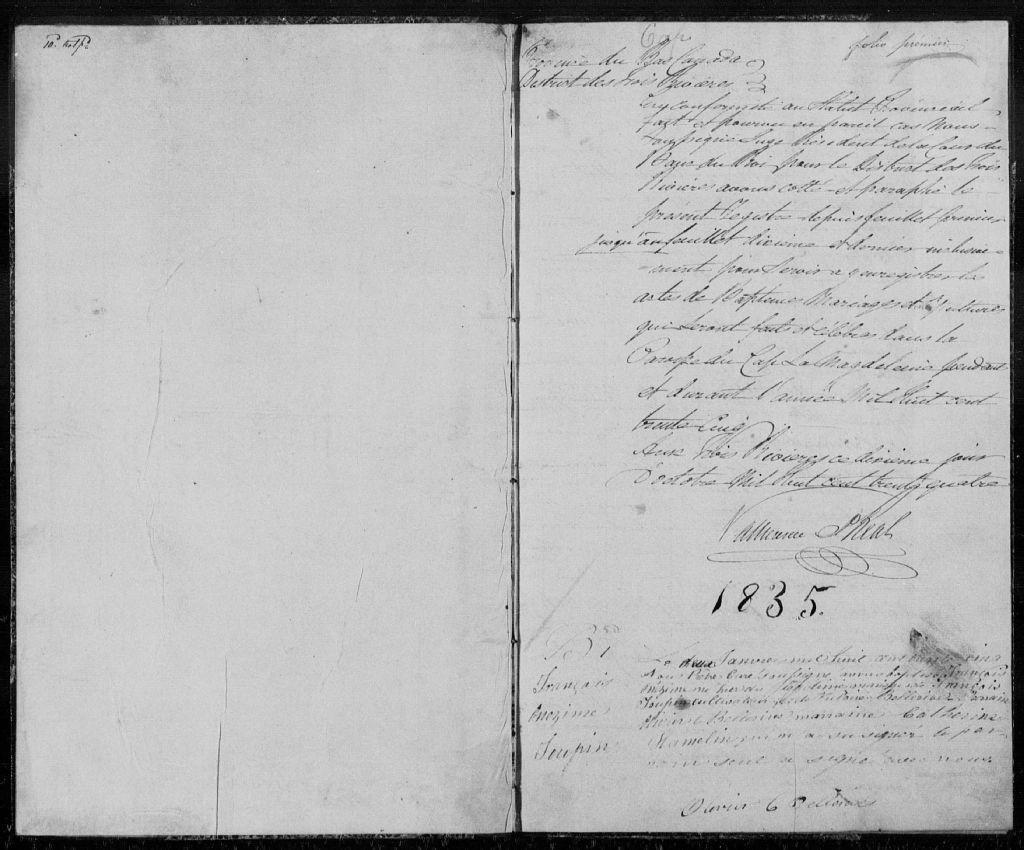 folio premier
Province du Bas Canada
District des Trois Rivieres
En conformité au Statut Provincial
fait et pourvu en pareil cas Nous
Soussigné Juge Résident de la Cour du
Banc du Roi pour le District des Trois
Rivières avons cotté et paraphé le
présent Registre depuis feuillet premier
jusqu'au feuillet dixieme et dernier inclusive-
-ment pour servir a enregistrer les
actes de Baptemes Mariages et Sépultures
qui seront faits et célébrés dans la
Paroisse du Cap La Magdeleine pendant
et durant l'année Mil huit cent
trente Cinq
Aux Trois Rivieres ce dixieme jour
D'octobre Mil huit cent trente quatre
Vallieres de St Real
1835.
B 1
François
Onezime
Toupin
Le deux Janvier mil huit cent trente cinq
Nous Ptre Curé soussigné avons baptisé François
Onezime né hier du légitime mariage de François
Toupin cultivateur et de
Olivier marraine Catherine
Hamelin qui n'a su signer le par-
rain seul a signé avec nous.
Olivier